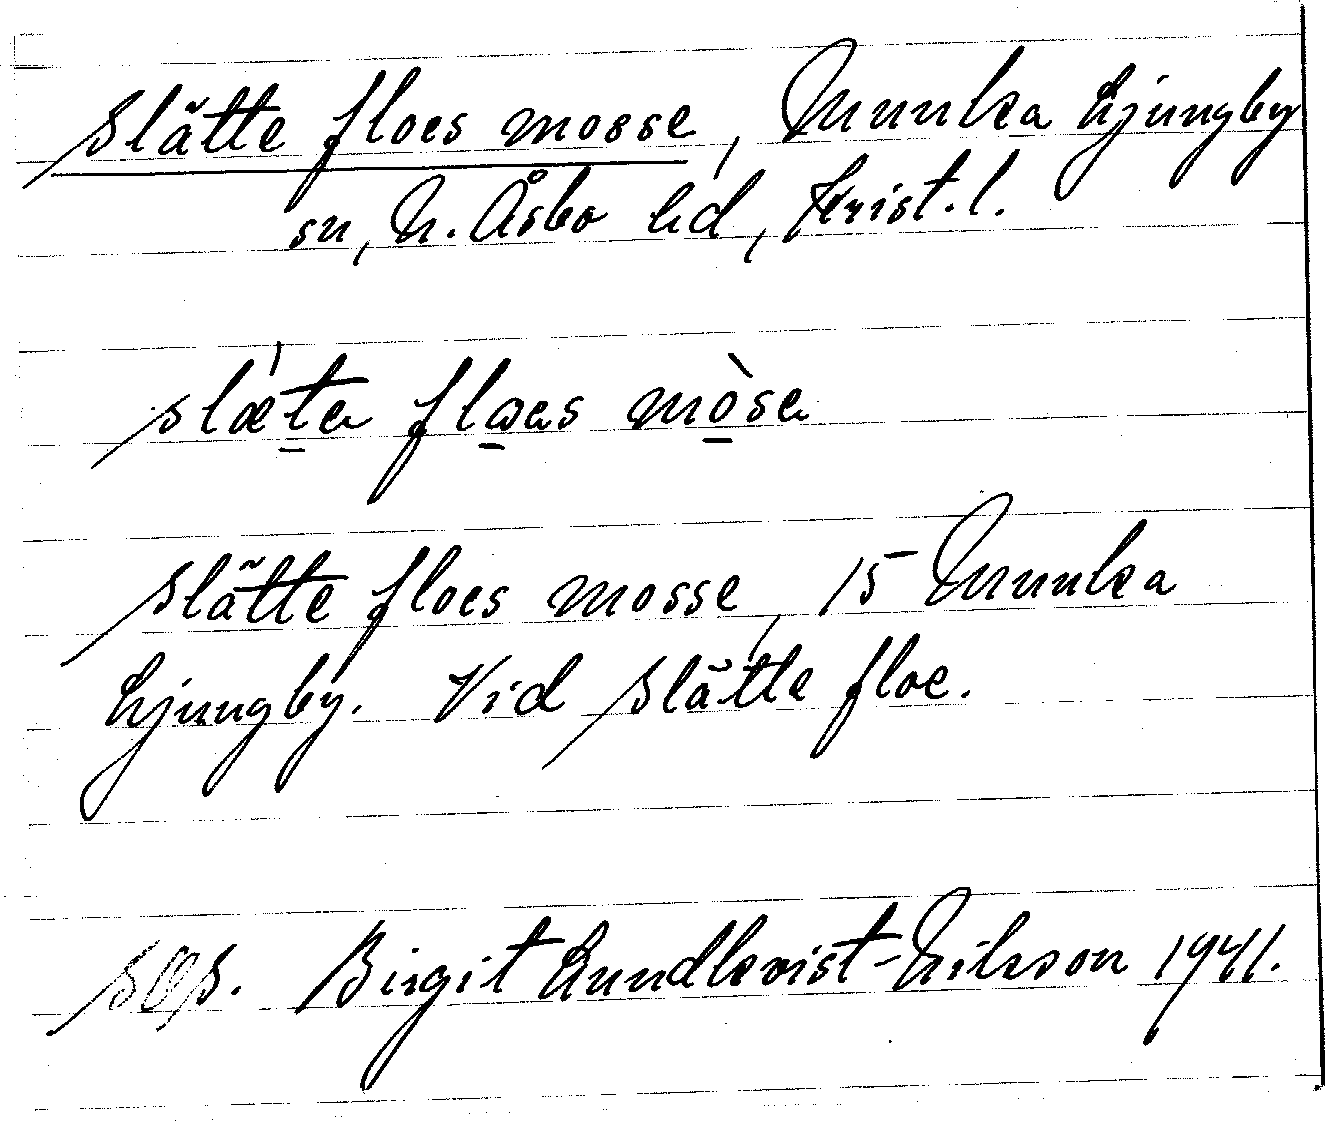 Slätte floes mosse, Munka Ljungby
sn, N. Åsbo hd, Krist. l.
slæ̀te flaes mòse
Slätte floes mosse, 15 Munka
Ljungby. Vid Slätte floe.
Birgit Lundkvist-Nilsson 1941.